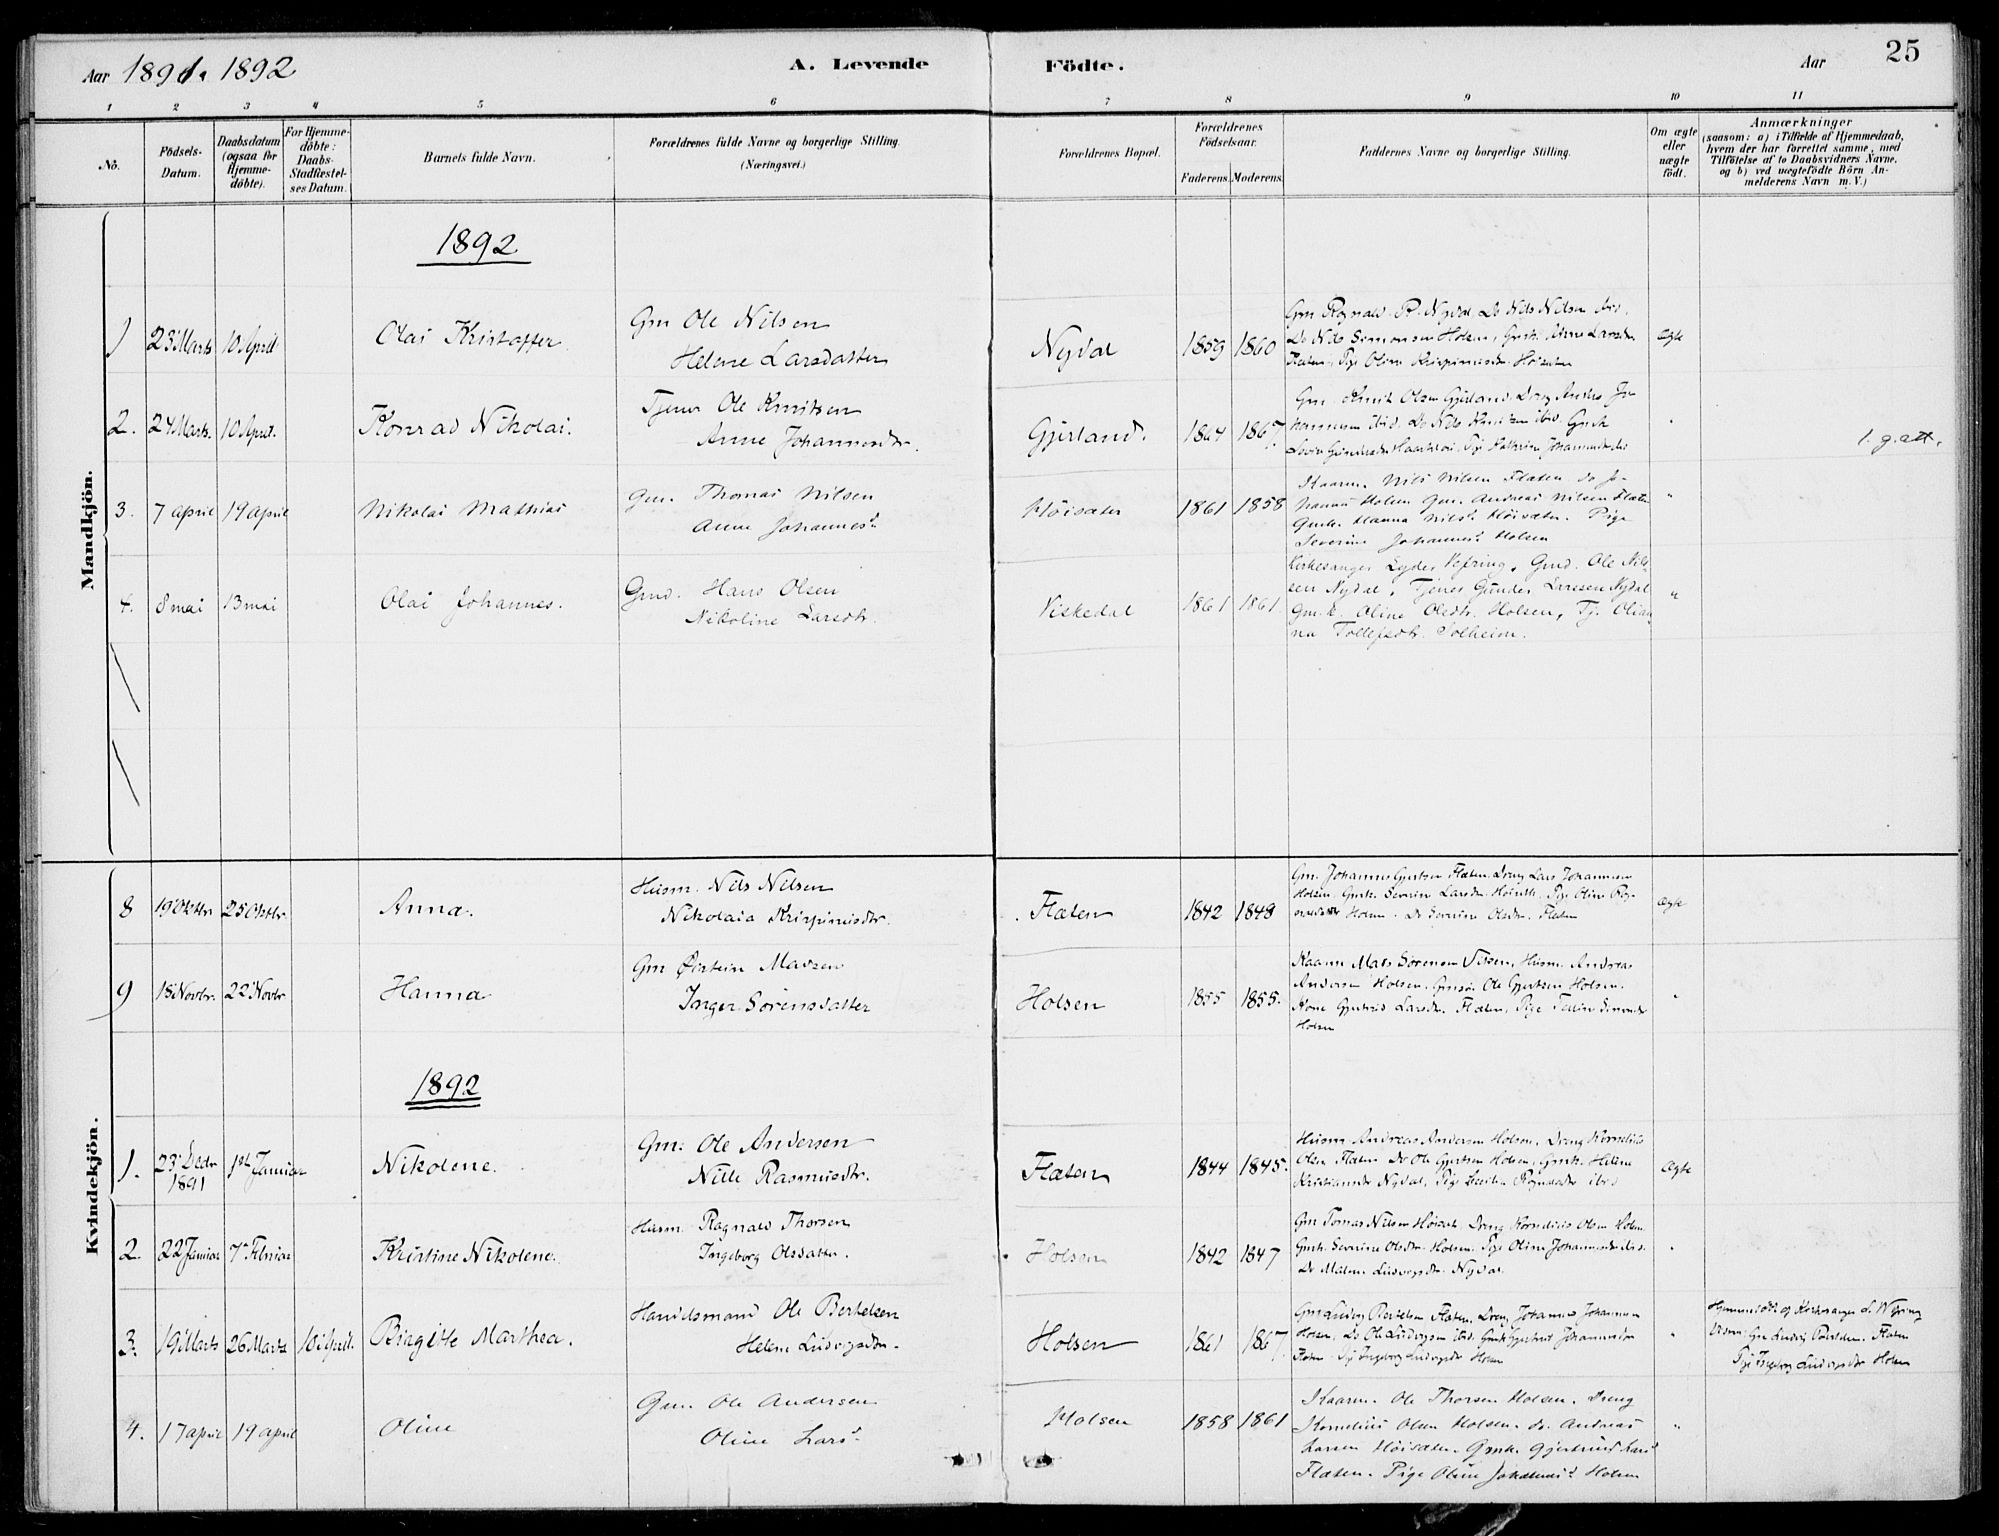 Aar 1891. 1892
A. Levende Födte.
Aar
25
1 2 3 4 5 6 7 8 9 10 11
No.
Födsels-Datum.
Daabsdatum (ogsaa for Hjemme-döbte).
For Hjemme-döbte: Daabs-Stadfæstel-ses Datum.
Barnets fulde Navn.
Forældrenes fulde Navne og borgerlige Stilling.
(Næringsvei.)
Forældrenes Bopæl.
Forældrenes Födselsaar.
Faderens. Moderens.
Faddernes Navne og borgerlige Stilling.
Om ægte eller uægte födt.
Anmærkninger
(saasom: a) i Tilfælde af Hjemmedaab,
hvem der har forrettet samme, med
Tilföielse af to Daabsvidners Navne.
og b) ved uægtefödte Börn An-
melderens Navn m. V.)
Mandkjön.
1892
1 23 Marts 10 April Olai Kristoffer Gm Ole Nilsen
Helene Larsdatter
Nydal 1859 1860
Gm Ragnald R. Nydal Do Nils Nilsen ibid.
Do Nils Simonsen Holsen, Gmk. Anne Larsdr
Flaten, Pige Oline Krispinusdr. Höisæter
ægte
2. 24 Marts. 10 April. Konrad Nikolai. Tjener Ole Knutsen
Anne Johannesdr.
Gjerland. 1864 1867
Gm. Knut Olsen Gjerland Dreng Andr. Jo-
hannesen ibid. Do Nils Knutsen ibid. Gmk
"
1. g. att.
3. 7 april 19 april Nikolai Mathias Gm. Thomas Nilsen
Anne Johannesd.
Höisæter 1861 1858
Kaarm. Nils Nilsen Flaten do Jo-
hannes Holsen Gm. Andreas Nilsen Flaten
Gmk. Hanna Nilsd. Höisæter. Pige
Severine Johannesd. Holsen
"
4. 8 mai 13 mai Olai Johannes. Gmd. Hans Olsen
Nikoline Larsdtr.
Viskedal 1861 1861
Kirkesanger Lyder Vefring, Gmd. Ole Nil-
sen Nydal, Tjener Gunder Larssen Nydal
Gm.k. Oline Olsdtr. Holsen, Tj. Olian-
na Tollefsdtr. Solheim.
"
Kvindekjön.
8 19 Oktbr 25 Oktbr. Anna. Husm. Nils Nilsen
Nikolaia Krispinusdr.
Flaten 1842 1848
Gm. Johannes Gjertsen Flaten. Dreng Lars Johannesen
Holsen. Gmk. Severine Larsdr. Pige Oline Rag-
naldsdr Holsen. Do Severine Olsdr. Flaten
ægte
9 15 Novbr. 22 Novbr. Hanna Gm Östein Madsen
Inger Sörensdatter
Holsen 1855 1855.
Kaarm Mads Sörensen Viken, Husm. Andreas
Andersen Holsen. Ole Gjertsen Holsen.
Kone Gjertrud Larsdr. Flaten, Pige
Holsen
"
1892
1. 23 Decbr 1891 1ste Januar Nikolene. Gm. Ole Andersen
Nille Rasmusdr.
Flaten 1844 1845.
Husm Andreas Andersen Holsen. Dreng Kornelius
Olsen Flaten Do Ole Gjertsen Holsen, Gmk. Helene
Kristiansdr Nydal, Pige Ragnaldsdr ibid
ægte
2. 22 Januar 7 Februar Kristine Nikolene. Husm. Ragnald Thorsen
Ingeborg Olsdatter.
Holsen 1842 1847
Gm Tomas Nilsen Höisæt. Dreng Kornelius Olsen Holsen.
Gmk. Severine Olsdr. Holsen. Pige Oline Johannesdr ibid.
Do Malene Ludvigsdr. Nydal.
"
3. 19 Marts 26 Marts 10 April. Birgitte Marthea. Handelsmand Ole Bertelsen
Helene Ludvigsdr.
Holsen 1861 1867.
Gm Ludvig Bertelsen Flaten, Dreng Johannes Johannesen
Holsen, Do Ole Ludvigsen ibid. Gmk Gjertrud Johannesdr
Flaten. Pige Ingeborg Ludvigsdr Holsen
"
Hjemmedöbt af Kirkesanger L. Wefring
Vidner: Gm Ludvig Bertelsen. Flaten
Pige Ingeborg Ludvigsdr Holsen
4. 17 april 19 april Oline Gm. Ole Andersen
Oline Larsd.
Holsen 1858 1861
Kaarm. Ole Thorsen Holsen. Dreng
Kornelius Olsen Holsen. do. Andreas
Larsen Höisæter. Gmk. Gjertrud Larsd
Flaten. Pige Oline Johannesd. Holsen
"